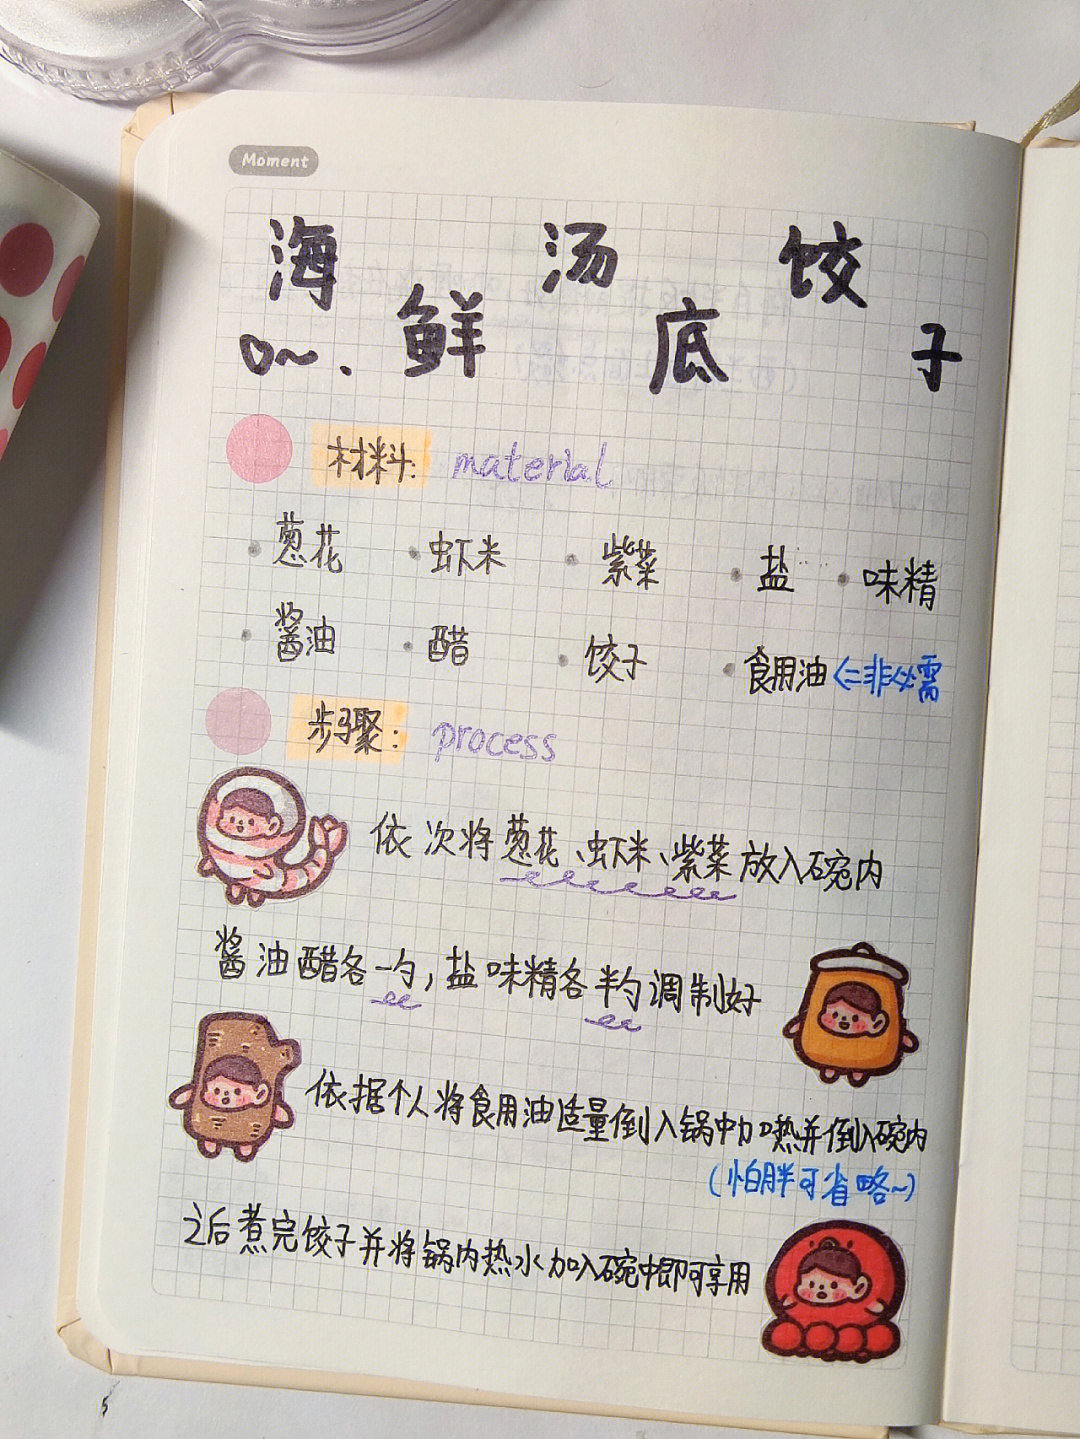 Moment
海鲜汤底饺子
材料: material
葱花 虾米 紫菜 盐 味精
酱油 醋 饺子 食用油<=非必需
步骤: process
依次将葱花、虾米、紫菜放入碗内
酱油醋各一勺,盐味精各半勺调制好
依据个人将食用油适量倒入锅中加热并倒入碗内
(怕胖可省略~)
之后煮完饺子并将锅内热水加入碗中即可享用